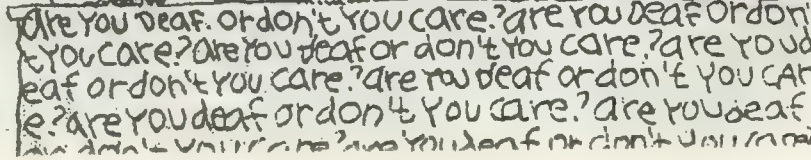 are You Deaf. Or don't You care.? are You Deaf Or don
t You care.? Are You deaf or don't You care.? are You D
eaf or don't You care.? are You Deaf or don't You CAr
e.? are You deaf or don't You care.? are You Deaf
or don't You care.? are You deaf or don't You care